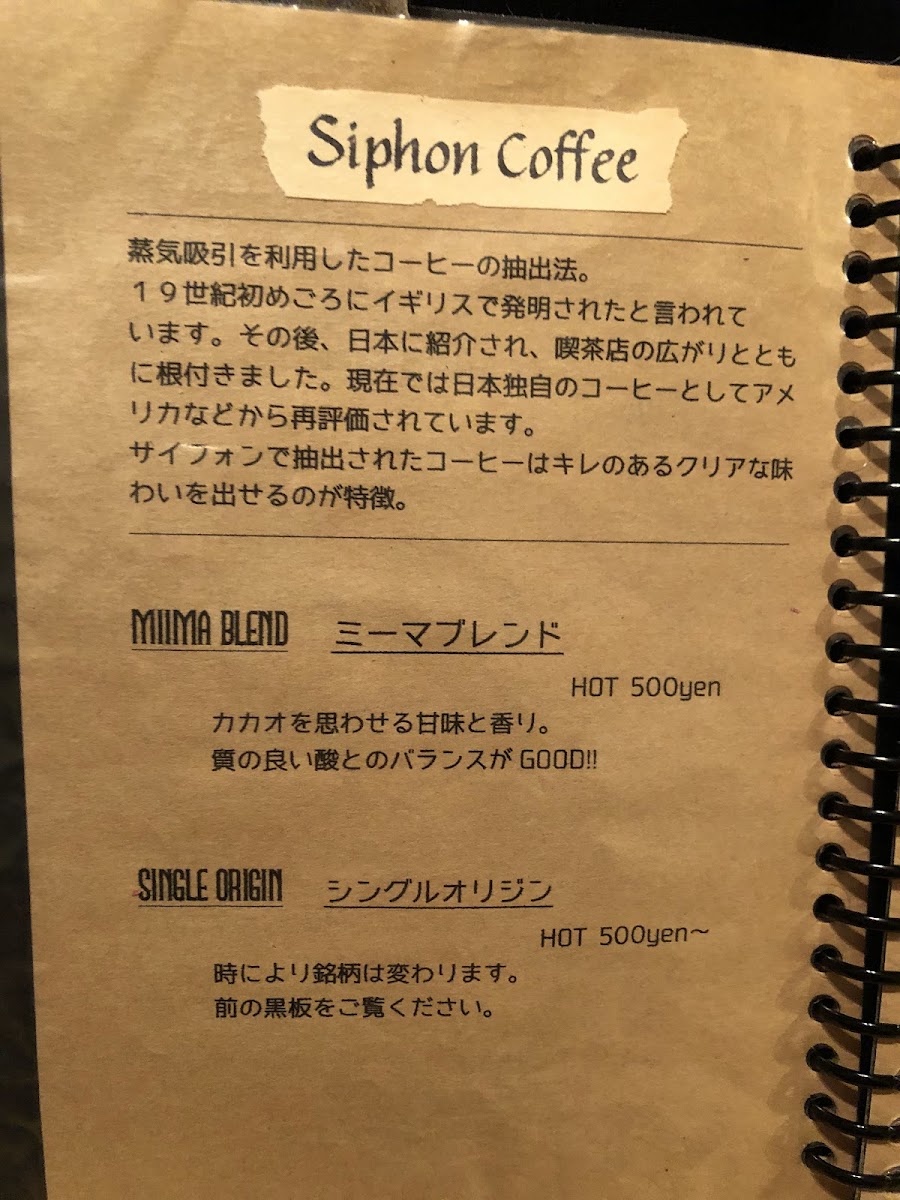 Siphon Coffee
蒸気吸引を利用したコーヒーの抽出法。
１９世紀初めごろにイギリスで発明されたと言われて
います。その後、日本に紹介され、喫茶店の広がりととも
に根付きました。現在では日本独自のコーヒーとしてアメ
リカなどから再評価されています。
サイフォンで抽出されたコーヒーはキレのあるクリアな味
わいを出せるのが特徴。
MIIMA BLEND ミーマブレンド
HOT 500yen
カカオを思わせる甘味と香り。
質の良い酸とのバランスが GOOD!!
SINGLE ORIGIN シングルオリジン
HOT 500yen～
時により銘柄は変わります。
前の黒板をご覧ください。